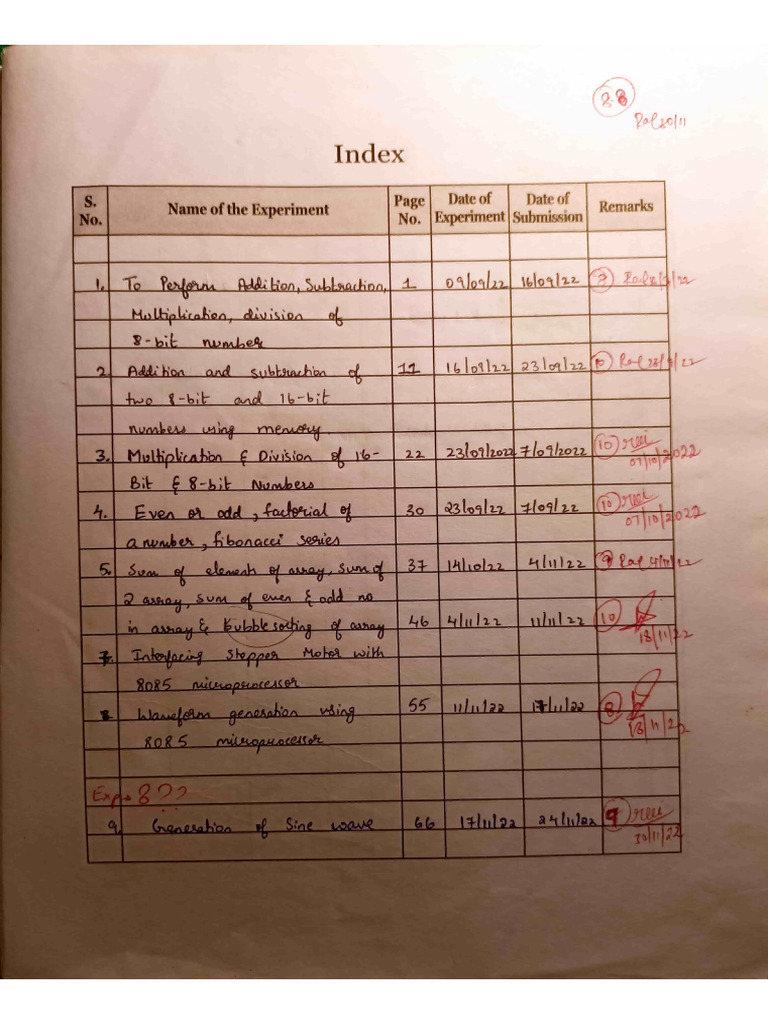 8.8
30/11
Index
S. No. Name of the Experiment Page No. Date of Experiment Date of Submission Remarks
1. To Perform Addition, Subtraction, 1 09/09/22 16/09/22
Multiplication, division of
8-bit number
2. Addition and subtraction of 11 16/09/22 23/09/22 10
two 8-bit and 16-bit
numbers using memory
3. Multiplication & Division of 16- 22 23/09/2022 7/09/2022 10
07/10/2022
Bit & 8-bit Numbers
4. Even or odd, factorial of 30 23/09/22 7/09/22 10
07/10/2022
a number, fibonacci series
5. Sum of element of array, sum of 37 14/10/22 4/11/22 9 4/11/22
2 array, sum of even & odd no
in array & bubble sorting of array 46 4/11/22 11/11/22 10
18/11/22
7. Interfacing Stepper Motor with
8085 microprocessor
8. Waveform generation using 55 11/11/22 17/11/22 8
18/11/22
8085 microprocessor
Exp 8??
9. Generation of Sine wave 66 17/11/22 24/11/22 9
30/11/22